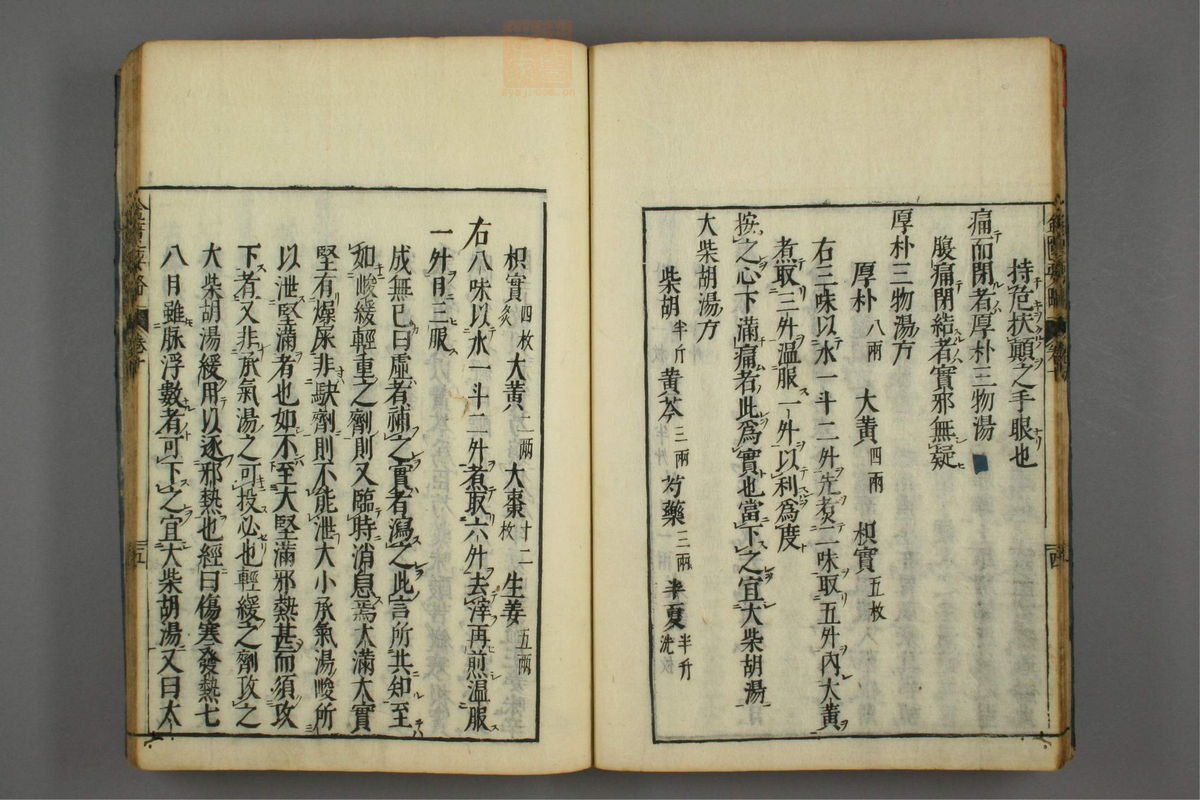 持危扶顛之手眼也
痛而閉者厚朴三物湯
腹痛閉結者實邪無疑
厚朴三物湯方
厚朴八兩 大黃四兩 枳實五枚
右三味以水一斗二升先煮二味取五升內大黃
煮取三升溫服一升以利爲度
按之心下滿痛者此爲實也當下之宜大柴胡湯
大柴胡湯方
柴胡半斤 黃芩三兩 芍藥三兩 半夏半升洗
枳實四枚炙 大黃二兩 大棗十二枚 生姜五兩
右八味以水一斗二升煮取六升去滓再煎溫服
一升日三服
成無已曰虛者補之實者瀉之此言所共知至
如峻緩輕重之劑則又臨時消息焉大滿大實
堅有燥屎非駃劑則不能泄大小承氣湯峻所
以泄堅滿者也如不至大堅滿邪熱甚而須攻
下者又非承氣湯之可投必也輕緩之劑攻之
大柴胡湯緩用以逐邪熱也經曰傷寒發熱七
八日雖脉浮數者可下之宜大柴胡湯又曰太